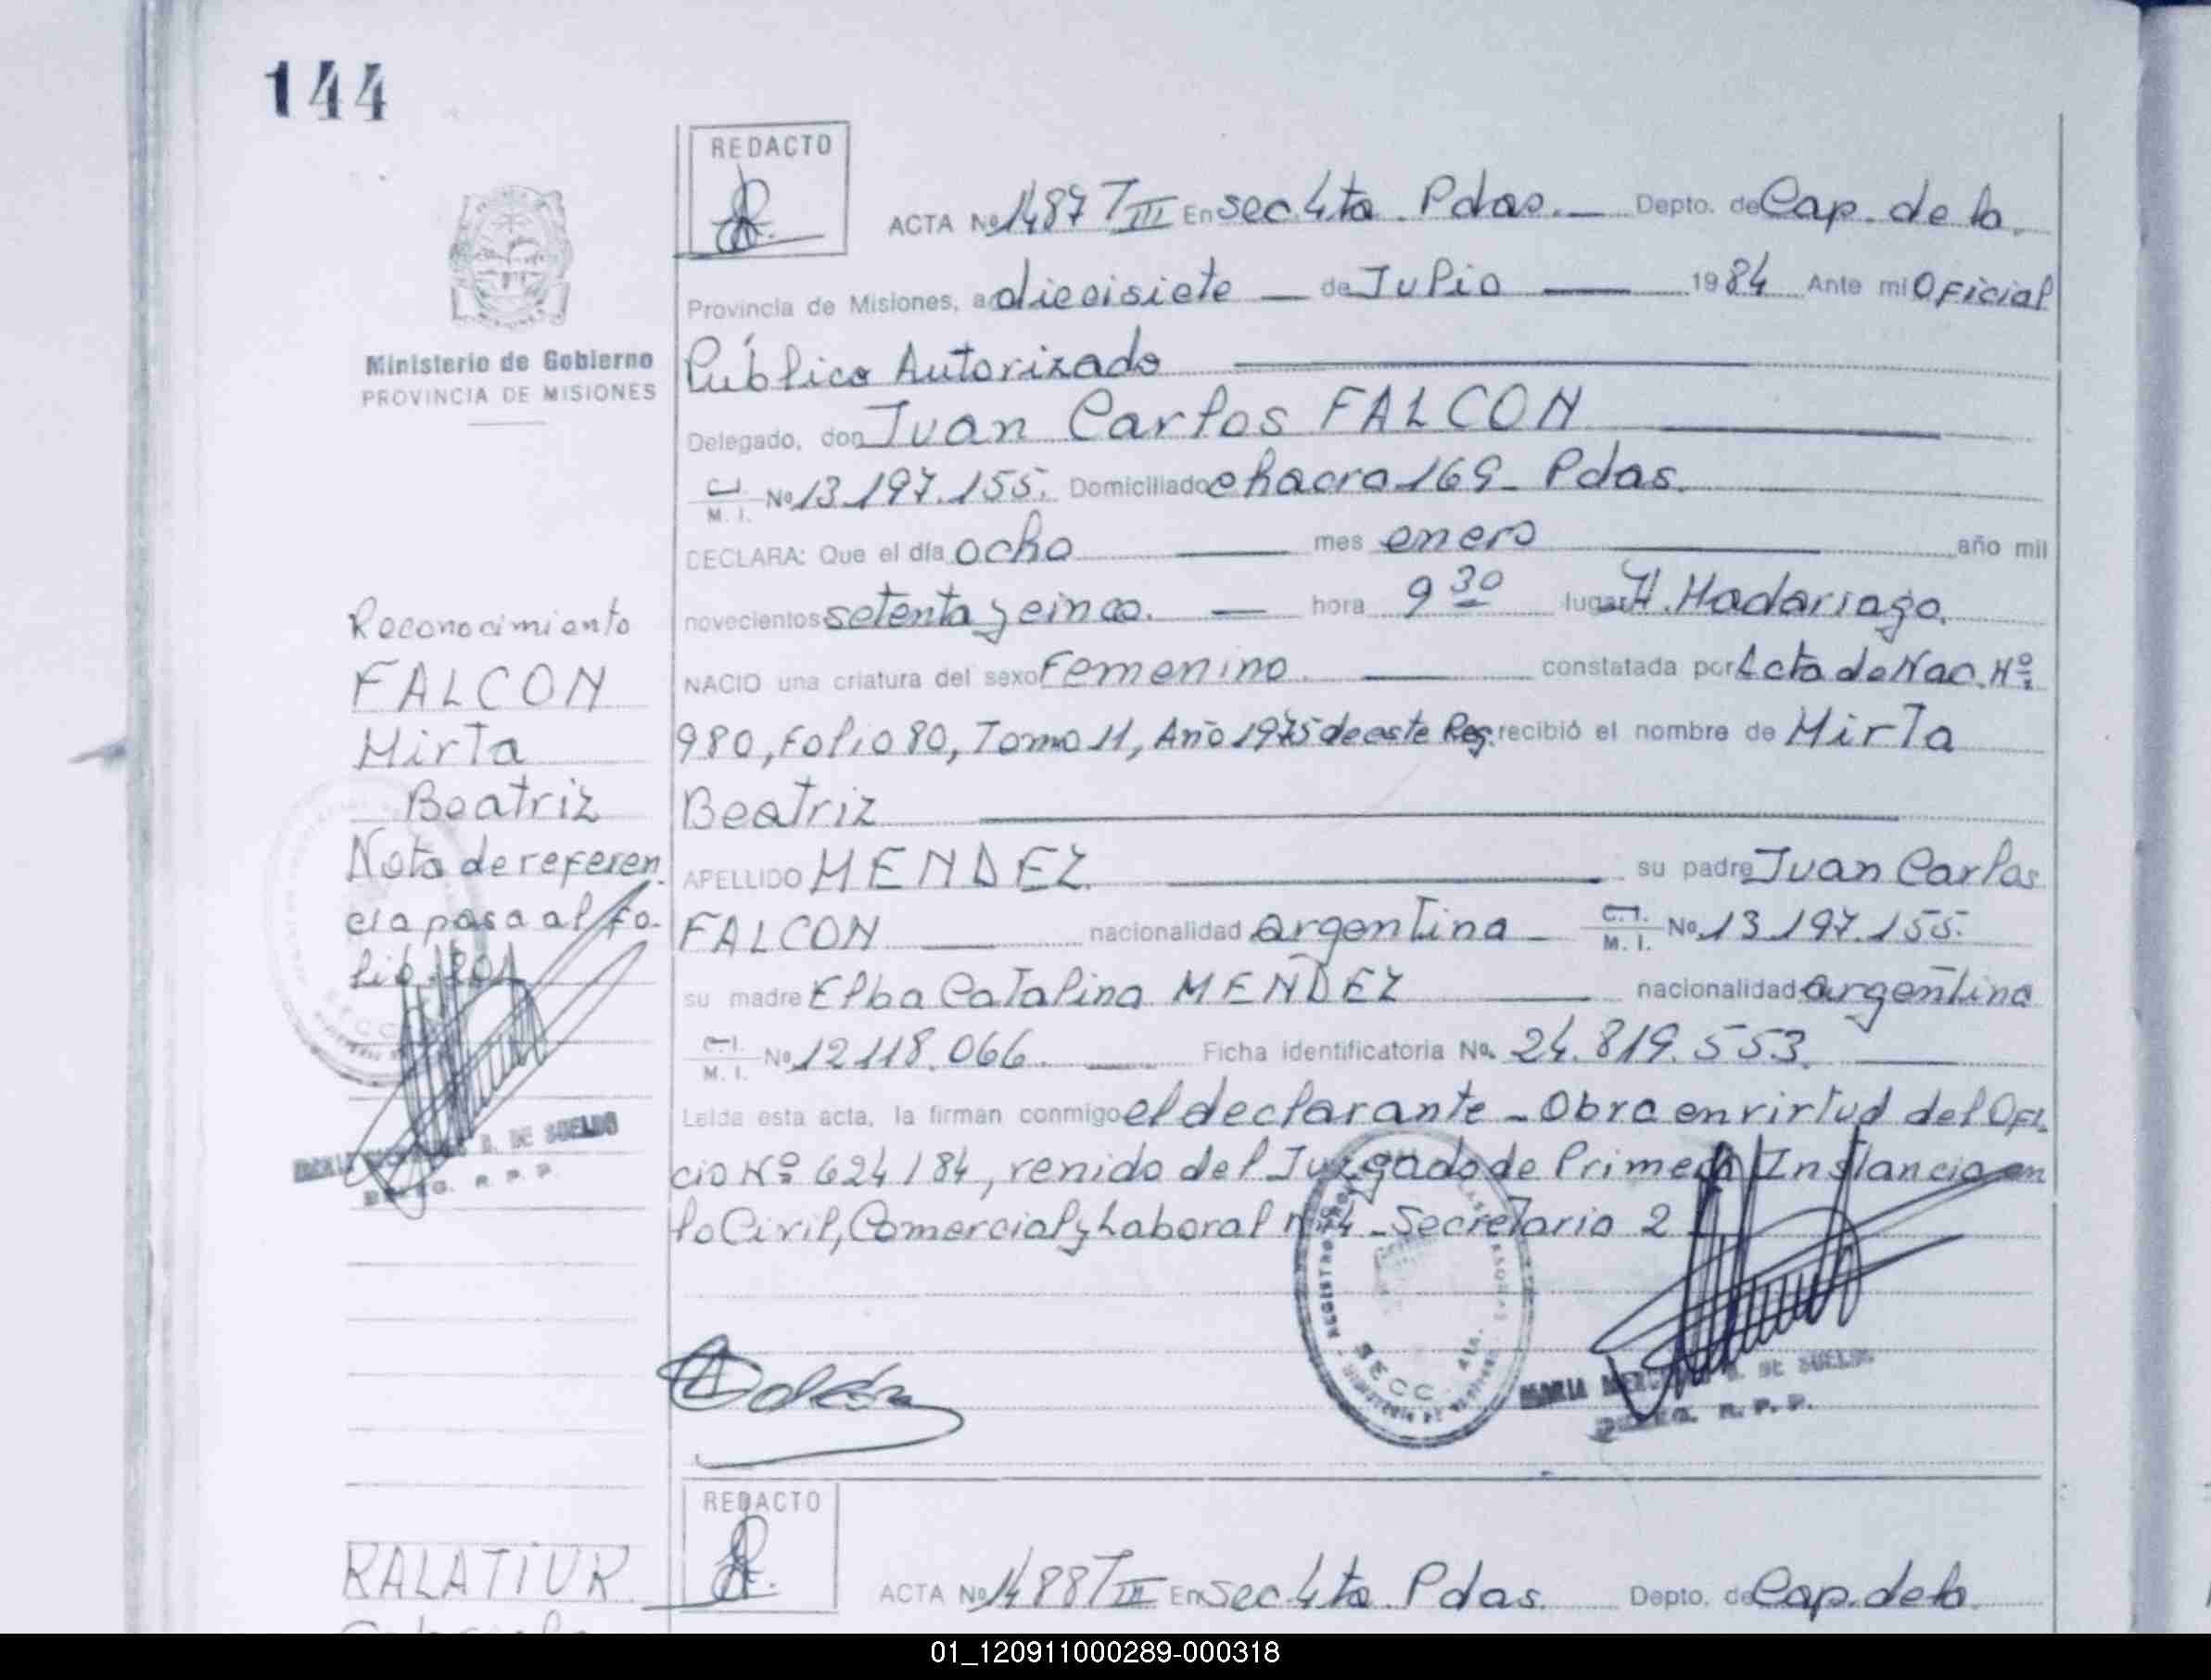 144
REDACTO
ACTA No 1487 T III En sec. 4ta. Pdas. Depto. de Cap. de la
Provincia de Misiones, a diecisiete de Julio 1984 Ante mi Oficial
Público Autorizado
Ministerio de Gobierno
PROVINCIA DE MISIONES
Delegado, don Juan Carlos FALCON
C.I. M. I. No 13.197.155. Domiciliado chacra 169 - Pdas.
DECLARA: Que el día ocho mes enero año mil
novecientos setenta y cinco. hora 9 30 lugar H. Madariaga.
NACIO una criatura del sexo Femenino. constatada por Acta de Nac. Nº
980, Folio 80, Tomo 11, Año 1975 de este Reg. recibió el nombre de Mirta
Beatriz
APELLIDO MENDEZ su padre Juan Carlos
FALCON nacionalidad argentina C.I. M. I. No 13.197.155.
su madre Elba Catalina MENDEZ nacionalidad argentina
C.I. M. I. No 12.118.066. Ficha identificatoria No. 24.819.553.
Leida esta acta, la firman conmigo el declarante - Obra en virtud del Ofi
cio Nº 624/84, venido del Juzgado de Primera Instancia en
lo Civil, Comercial y Laboral nº 4 - Secretaria 2
Reconocimiento
FALCON
Mirta
Beatriz
Nota de referen
cia pasa al fo-
lio 201
DE SUELDO
R. P. P.
SECC. 4ta.
MARIA MERCEDES DE SUELDO
R. P. P.
REDACTO
RALATIUK
ACTA No 1488 T III En sec. 4ta. Pdas. Depto. de Cap. de la
01_120911000289-000318